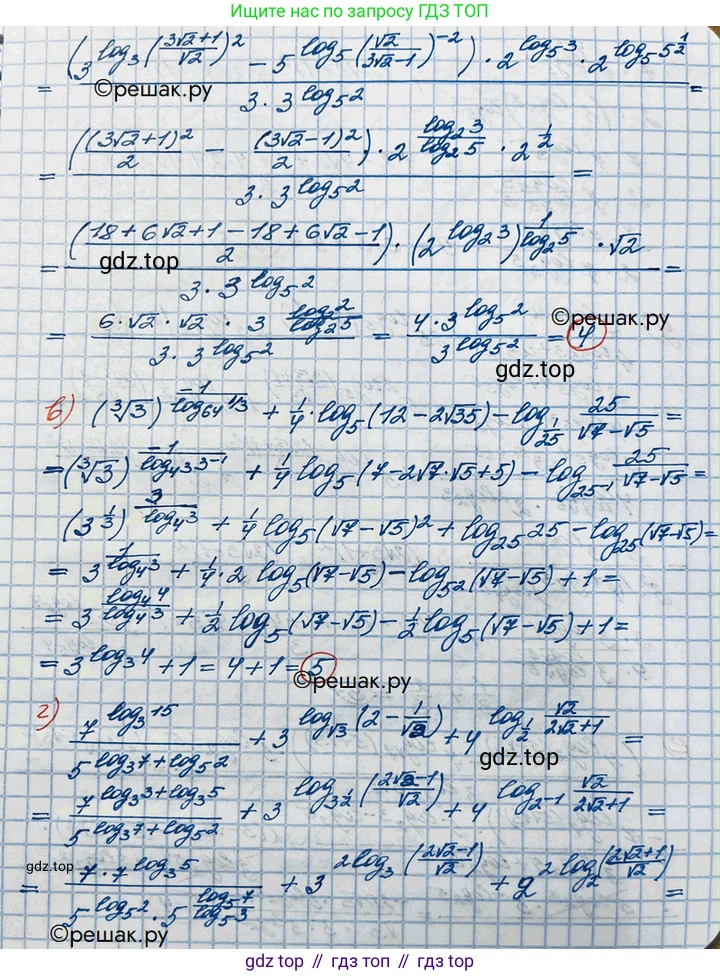 Ищите ответ по запросу ГДЗ ТОП
= ((3^(log_3 ((3√2+1)/√2)^2) − 5^(log_5 (√2/(3√2−1))^(−2))) · 2^(log_5 3) · 2^(log_5 5^(1/2))) / (3 · 3^(log_5 2)) =
©решак.ру
= (((3√2+1)^2/2 − (3√2−1)^2/2) · 2^(log_2 3/log_2 5) · 2^(1/2)) / (3 · 3^(log_5 2)) =
= (((18+6√2+1−18+6√2−1)/2) · (2^(log_2 3))^(1/log_2 5) · √2) / (3 · 3^(log_5 2)) =
gdz.top
= (6·√2·√2 · 3^(log_2 2/log_2 5)) / (3 · 3^(log_5 2)) = (4 · 3^(log_5 2)) / 3^(log_5 2) = 4
©решак.ру
gdz.top
в) (∛3)^(−1/log_64 1/3) + 1/4 · log_5 (12−2√35) − log_(1/25) 25/(√7−√5) =
= (∛3)^(−1/log_(4^3) 3^(−1)) + 1/4 log_5 (7−2√7·√5+5) − log_(25^(−1)) 25/(√7−√5) =
(3^(1/3))^(3/log_4 3) + 1/4 log_5 (√7−√5)^2 + log_25 25 − log_25 (√7−√5) =
= 3^(1/log_4 3) + 1/4 · 2 log_5 (√7−√5) − log_(5^2) (√7−√5) + 1 =
= 3^(log_4 4/log_4 3) + 1/2 log_5 (√7−√5) − 1/2 log_5 (√7−√5) + 1 =
= 3^(log_3 4) + 1 = 4+1 = 5
©решак.ру
г) 7^(log_3 15) / 5^(log_3 7+log_5 2) + 3^(log_√3 (2−1/√2)) + 4^(log_(1/2) √2/(2√2+1)) =
gdz.top
= 7^(log_3 3+log_3 5) / 5^(log_3 7+log_5 2) + 3^(log_(3^(1/2)) ((2√2−1)/√2)) + 4^(log_(2^(−1)) √2/(2√2+1)) =
gdz.top
= (7 · 7^(log_3 5)) / (5^(log_5 2) · 5^(log_5 7/log_5 3)) + 3^(2log_3 ((2√2−1)/√2)) + 2^(2 log_2 ((2√2+1)/√2)) =
©решак.ру
gdz.top // гдз.топ // гдз.top